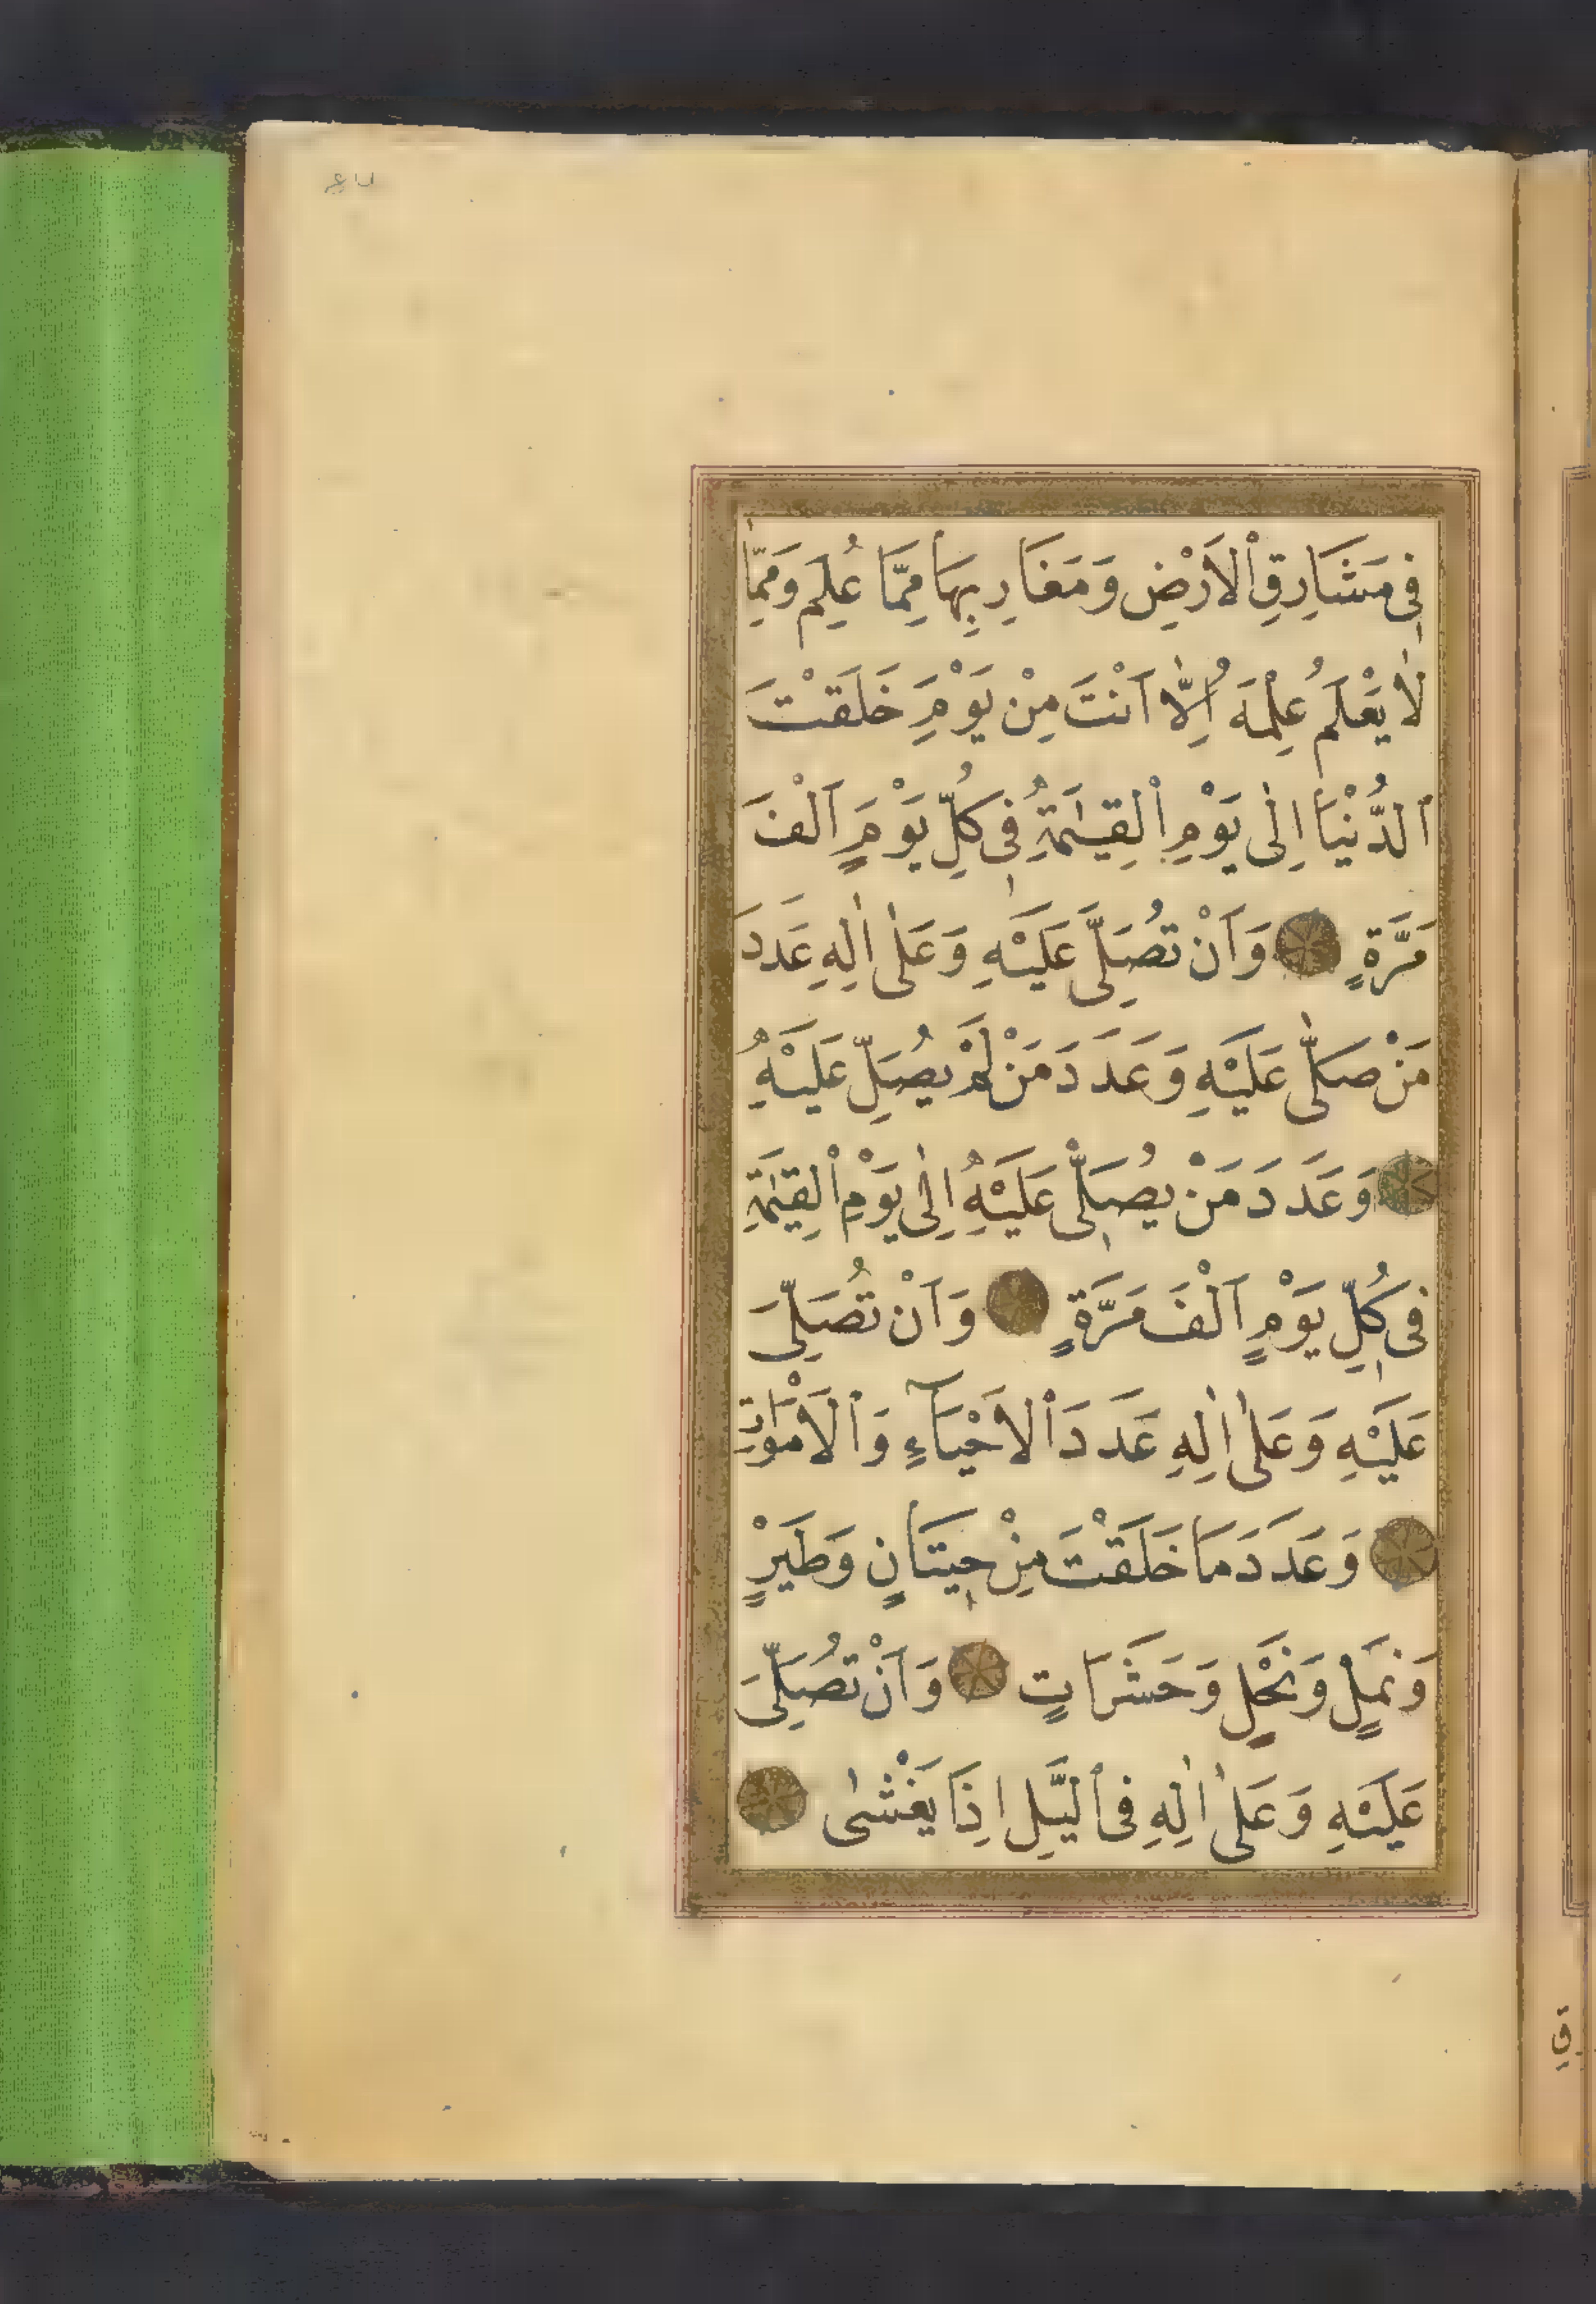 فِى مَشَارِقِ ٱلْاَرْضِ وَمَغَارِبِهَا مِمَّا عُلِمَ وَمِمَّا
لَا يَعْلَمُ عِلْمَهُ اِلَّا اَنْتَ مِنْ يَوْمِ خَلَقْتَ
ٱلدُّنْيَا اِلٰى يَوْمِ ٱلْقِيٰمَةِ فِى كُلِّ يَوْمٍ اَلْفَ
مَرَّةٍ وَاَنْ تُصَلِّىَ عَلَيْهِ وَعَلٰى اٰلِهِ عَدَدَ
مَنْ صَلّٰى عَلَيْهِ وَعَدَدَ مَنْ لَمْ يُصَلِّ عَلَيْهِ
وَعَدَدَ مَنْ يُصَلِّى عَلَيْهِ اِلٰى يَوْمِ ٱلْقِيٰمَةِ
فِى كُلِّ يَوْمٍ اَلْفَ مَرَّةٍ وَاَنْ تُصَلِّىَ
عَلَيْهِ وَعَلٰى اٰلِهِ عَدَدَ ٱلْاَحْيَآءِ وَٱلْاَمْوَاتِ
وَعَدَدَ مَا خَلَقْتَ مِنْ حِيتَانٍ وَطَيْرٍ
وَنَمْلٍ وَنَحْلٍ وَحَشَرَاتٍ وَاَنْ تُصَلِّىَ
عَلَيْهِ وَعَلٰى اٰلِهِ فِى ٱلَّيْلِ اِذَا يَغْشٰى